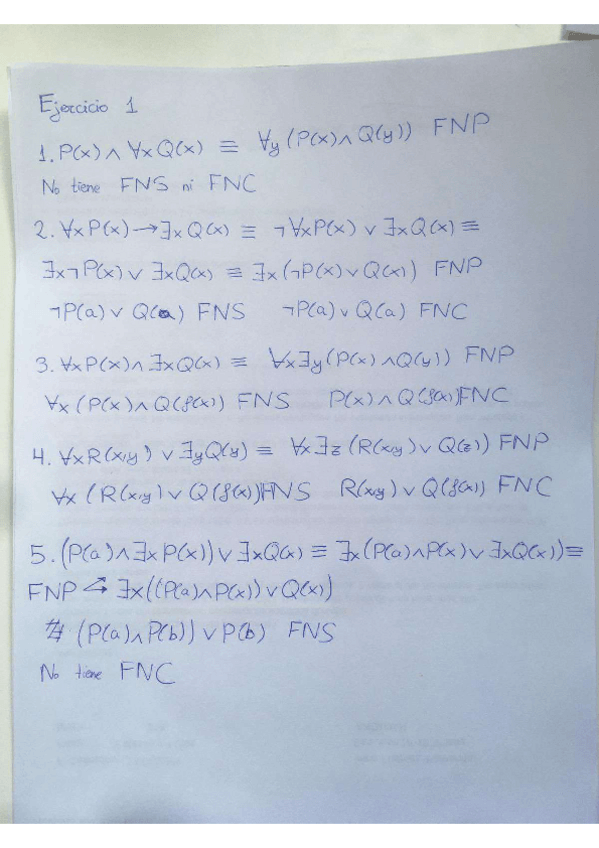 Ejercicio 1
1. P(x) ∧ ∀x Q(x) ≡ ∀y (P(x) ∧ Q(y)) FNP
No tiene FNS ni FNC
2. ∀x P(x) → ∃x Q(x) ≡ ¬∀x P(x) ∨ ∃x Q(x) ≡
∃x ¬P(x) ∨ ∃x Q(x) ≡ ∃x (¬P(x) ∨ Q(x)) FNP
¬P(a) ∨ Q(a) FNS ¬P(a) ∨ Q(a) FNC
3. ∀x P(x) ∧ ∃x Q(x) ≡ ∀x ∃y (P(x) ∧ Q(y)) FNP
∀x (P(x) ∧ Q(f(x)) FNS P(x) ∧ Q(f(x)) FNC
4. ∀x R(x,y) ∨ ∃y Q(y) ≡ ∀x ∃z (R(x,y) ∨ Q(z)) FNP
∀x (R(x,y) ∨ Q(f(x)) FNS R(x,y) ∨ Q(f(x)) FNC
5. (P(a) ∧ ∃x P(x)) ∨ ∃x Q(x) ≡ ∃x (P(a) ∧ P(x) ∨ ∃x Q(x)) ≡
FNP ∃x ((P(a) ∧ P(x)) ∨ Q(x))
(P(a) ∧ P(b)) ∨ P(b) FNS
No tiene FNC